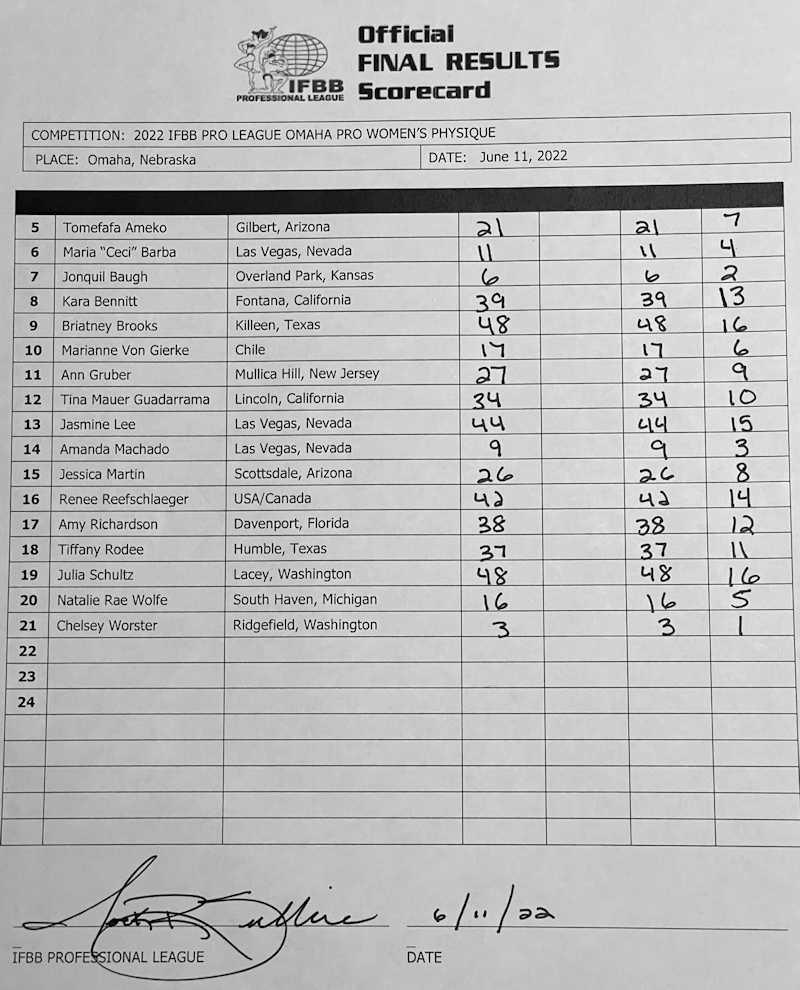 Official
FINAL RESULTS
Scorecard
IFBB
PROFESSIONAL LEAGUE
COMPETITION: 2022 IFBB PRO LEAGUE OMAHA PRO WOMEN'S PHYSIQUE
PLACE: Omaha, Nebraska DATE: June 11, 2022
5 Tomefafa Ameko Gilbert, Arizona 21 21 7
6 Maria "Ceci" Barba Las Vegas, Nevada 11 11 4
7 Jonquil Baugh Overland Park, Kansas 6 6 2
8 Kara Bennitt Fontana, California 39 39 13
9 Briatney Brooks Killeen, Texas 48 48 16
10 Marianne Von Gierke Chile 17 17 6
11 Ann Gruber Mullica Hill, New Jersey 27 27 9
12 Tina Mauer Guadarrama Lincoln, California 34 34 10
13 Jasmine Lee Las Vegas, Nevada 44 44 15
14 Amanda Machado Las Vegas, Nevada 9 9 3
15 Jessica Martin Scottsdale, Arizona 26 26 8
16 Renee Reefschlaeger USA/Canada 42 42 14
17 Amy Richardson Davenport, Florida 38 38 12
18 Tiffany Rodee Humble, Texas 37 37 11
19 Julia Schultz Lacey, Washington 48 48 16
20 Natalie Rae Wolfe South Haven, Michigan 16 16 5
21 Chelsey Worster Ridgefield, Washington 3 3 1
22
23
24
6/11/22
IFBB PROFESSIONAL LEAGUE DATE